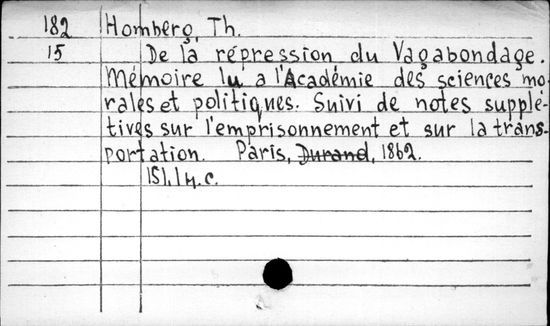 182 Homberg, Th.
15 De la répression du Vagabondage.
Mémoire lu a l'Académie des sciences mo-
rales et politiques. Suivi de notes supplé-
tives sur l'emprisonnement et sur la trans-
portation. Paris, Durand, 1862.
151.1 4. c.